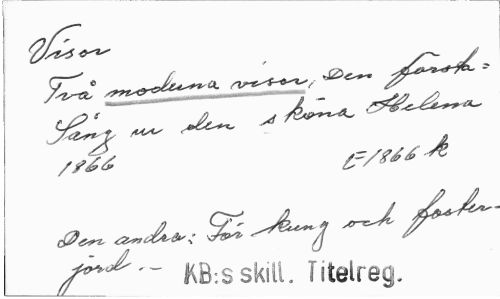 Visor
Två moderna visor, Den första=
Sång ur den sköna Helena
1866 E 1866 k
Den andra: För kung och foster-
jord --
KB:s skill. Titelreg.